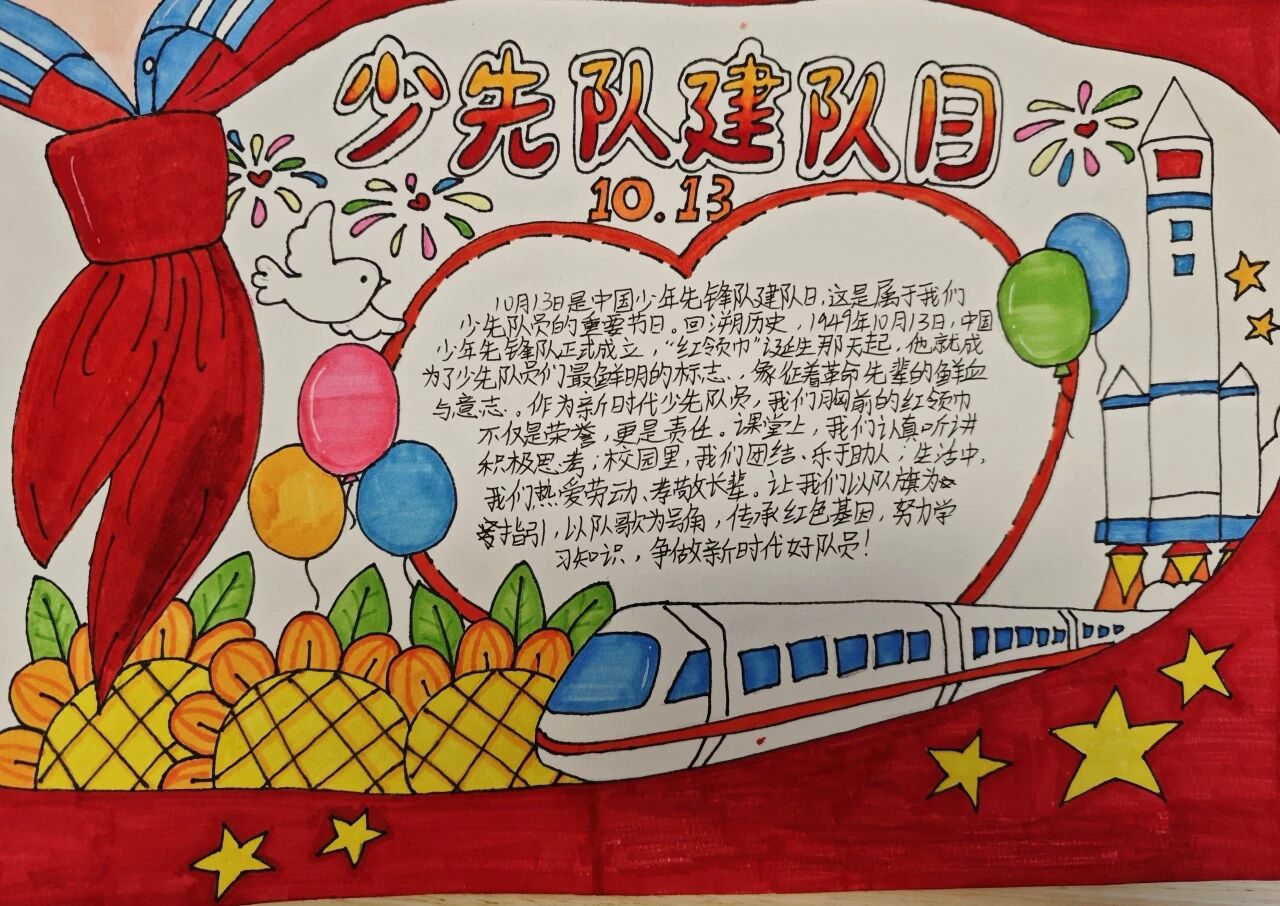 少先队建队日
10.13
10月13日是中国少年先锋队建队日,这是属于我们
少先队员的重要节日。回溯历史,1949年10月13日,中国
少年先锋队正式成立,“红领巾”诞生那天起,他就成
为了少先队员们最鲜明的标志,象征着革命先辈的鲜血
与意志。作为新时代少先队员,我们胸前的红领巾
不仅是荣誉,更是责任。课堂上,我们认真听讲
积极思考;校园里,我们团结、乐于助人;生活中,
我们热爱劳动、孝敬长辈。让我们以队旗为
指引,以队歌为号角,传承红色基因,努力学
习知识,争做新时代好队员!